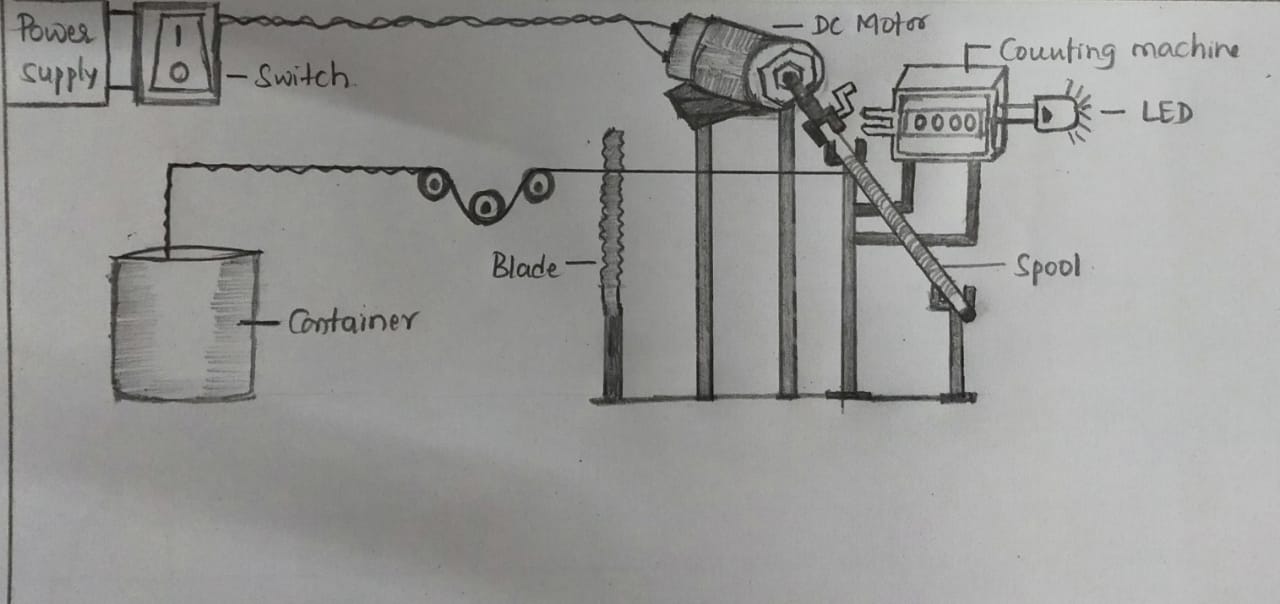 Power
supply
Switch
DC Motor
Counting machine
LED
0000
Blade
Spool
Container